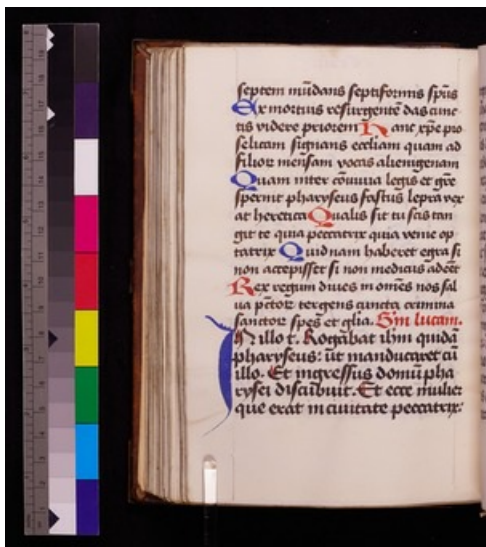 septem mūdans septiformis sp̄us
Ex mortuis resurgentē das cunc
tis videre priorem Hanc xp̄e pro
selitam signans eccl̄iam quam ad
filior mensam vocas alienigenam
Quam inter cōuiuia legis et gr̄e
spernit pharyseus fastus lepra vex
at heretica Qualis sit tu scis tan
git te quia peccatrix quia venie op
tatrix Quidnam haberet egra si
non accepisset si non medicus adēet
Rex regum diues in om̄es nos sal
ua pc̄tor tergens cuncta crimina
sanctor spes et gl̄ia. Sm̄ lucam.
In illo t. Rogabat ih̄m quidā
pharyseus: ut manducaret cū
illo. Et ingressus domū pha
rysei discubuit. Et ecce mulier
que erat in ciuitate peccatrix: